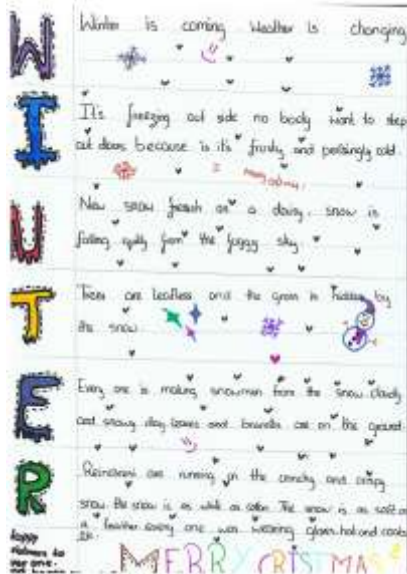 W
Winter is coming Weather is changing
I
It's freezing out side no body want to step
out doors because is it's and cold.
N
New snow fresh as a daisy. snow is
falling from the foggy sky
T
Trees are leafless and the grass is by
the snow.
E
Every one is making snowman from the snow. cloudy
and snowy day leaves and are on the ground.
R
Reindeers are running in the crunchy and crispy
snow. the snow is as white as cotton. The snow is as soft as
a feather every one was wearing gloves hat and coats
MERRY CRISTMAS
happy
to